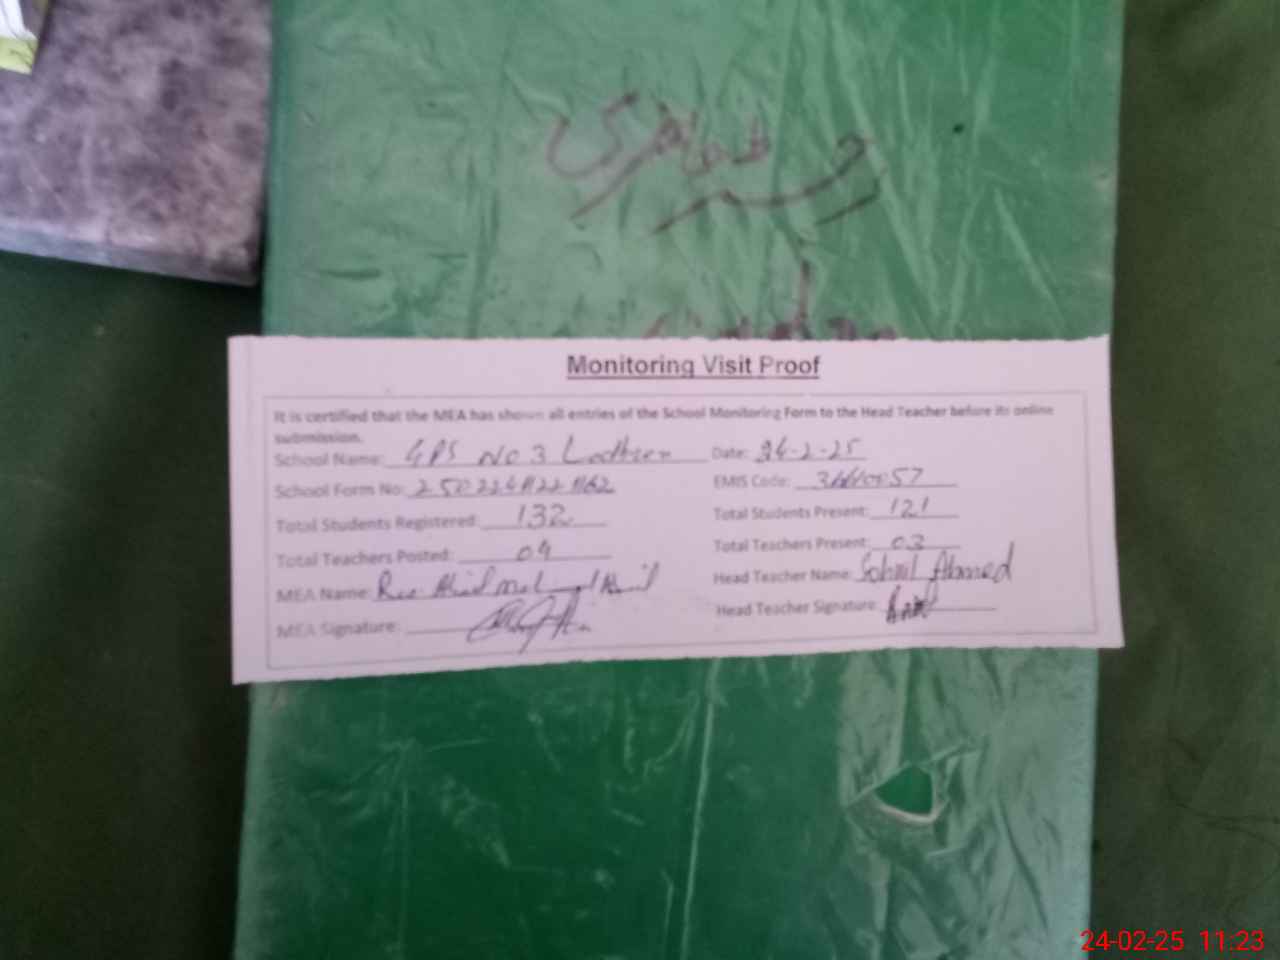 رجسٹر حاضری
Monitoring Visit Proof
It is certified that the MEA has shown all entries of the School Monitoring Form to the Head Teacher before its online
submission.
School Name: GPS No 3 Lodhran Date: 24-2-25
School Form No: EMIS Code:
Total Students Registered: 132 Total Students Present: 121
Total Teachers Posted: 04 Total Teachers Present: 03
MEA Name: Head Teacher Name: Sohail Ahmed
MEA Signature: Head Teacher Signature:
24-02-25 11:23